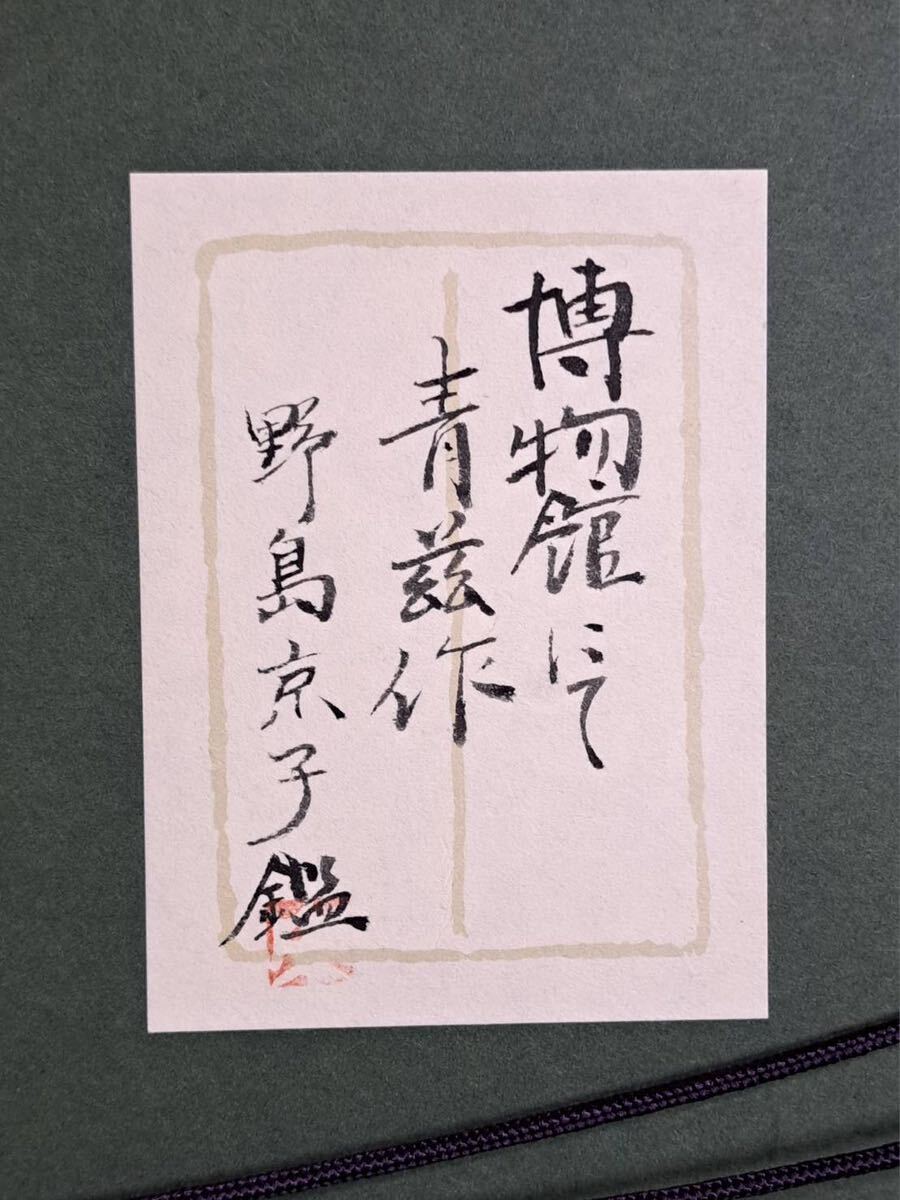 博物館にて
青茲作
野島京子鑑